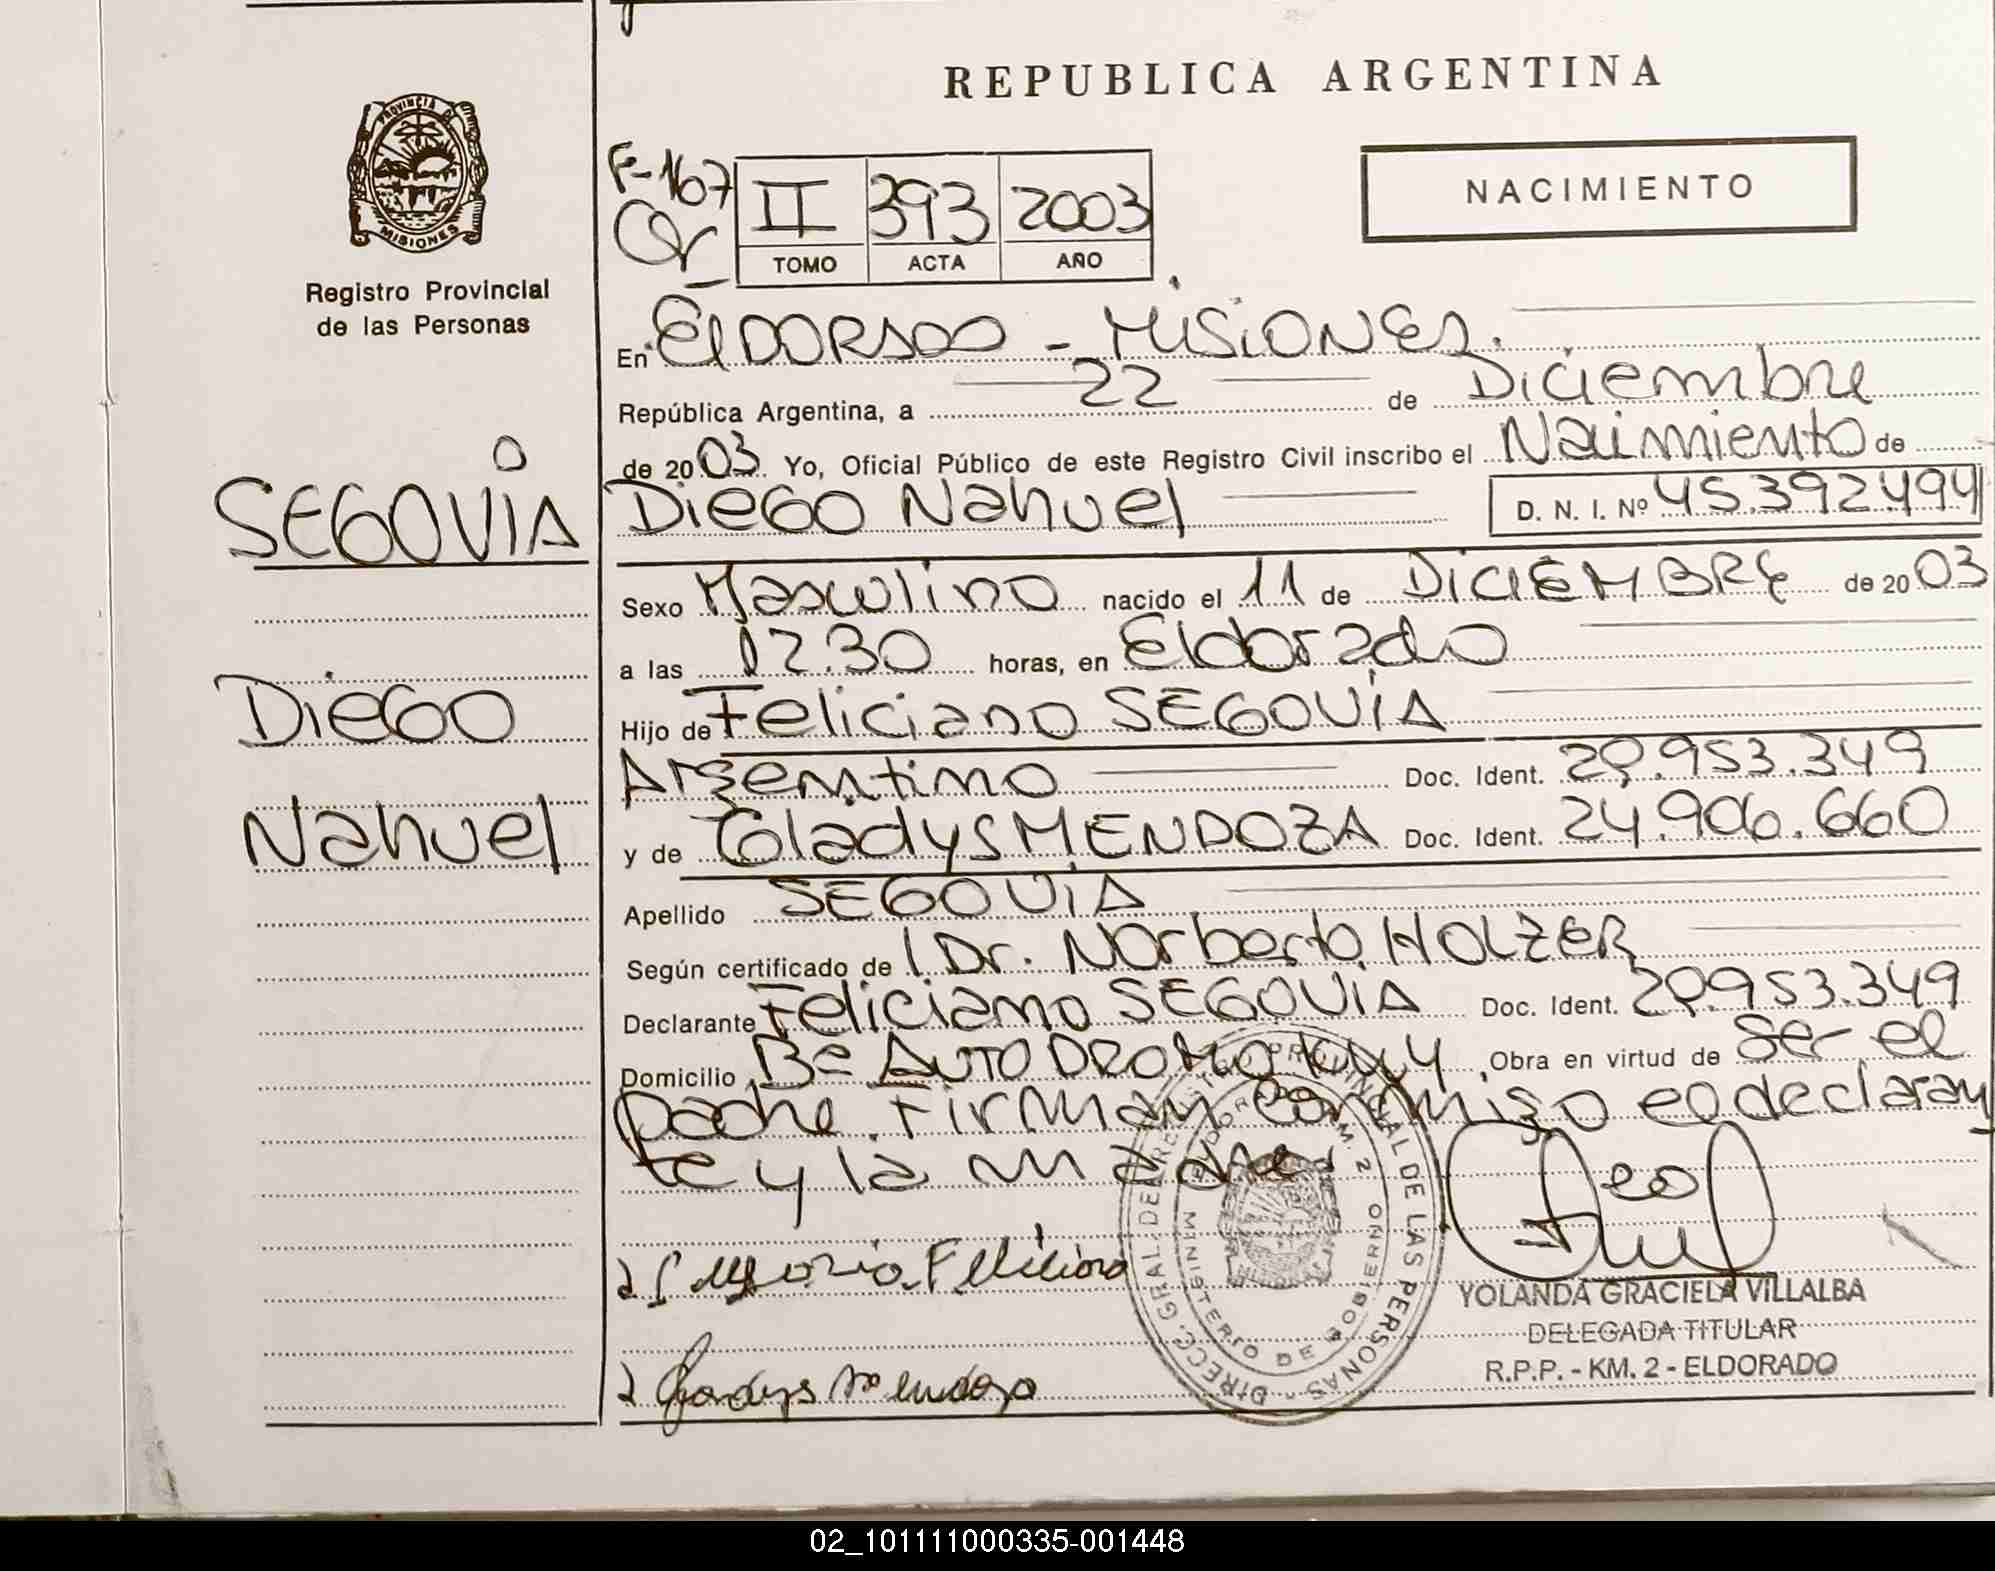 REPUBLICA ARGENTINA
PROVINCIA DE
MISIONES
Registro Provincial
de las Personas
F-167
II 393 2003
TOMO ACTA AÑO
NACIMIENTO
En ELDORADO - MISIONES.
República Argentina, a 22 de Diciembre
de 2003 Yo, Oficial Público de este Registro Civil inscribo el Nacimiento de
Diego Nahuel D. N. I. Nº 45.392.494
SEGOVIA
Diego
Nahuel
Sexo Masculino nacido el 11 de DICIEMBRE de 2003
a las 12.30 horas, en Eldorado
Hijo de Feliciano SEGOVIA
Argentino Doc. Ident. 29.953.349
y de Gladys MENDOZA Doc. Ident. 24.906.660
Apellido SEGOVIA
Según certificado de Dr. Norberto HOLZER
Declarante Feliciano SEGOVIA Doc. Ident. 29.953.349
Domicilio Bº AUTODROMO Obra en virtud de Ser el
padre. Firman conmigo el declaran
te y la madre
Feliciano
Gladys Mendoza
DIRECC. GRAL. DEL REGISTRO PROVINCIAL DE LAS PERSONAS
MINISTERIO DE GOBIERNO
ELDORADO KM. 2
YOLANDA GRACIELA VILLALBA
DELEGADA TITULAR
R.P.P. - KM. 2 - ELDORADO
02_101111000335-001448